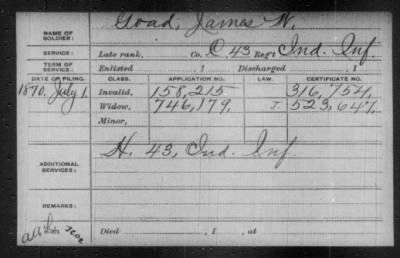 Goad, James W.
NAME OF SOLDIER:
SERVICE: Late rank, Co. C 43 Reg't Ind. Inf.
TERM OF SERVICE: Enlisted , 1 Discharged , 1
DATE OF FILING. CLASS. APPLICATION NO. LAW. CERTIFICATE NO.
1870, July 1. Invalid, 158,215 316,754,
Widow, 746,179, J. 523,647,
Minor,
H. 43, Ind. Inf.
ADDITIONAL SERVICES:
REMARKS:
Died , 1 , at